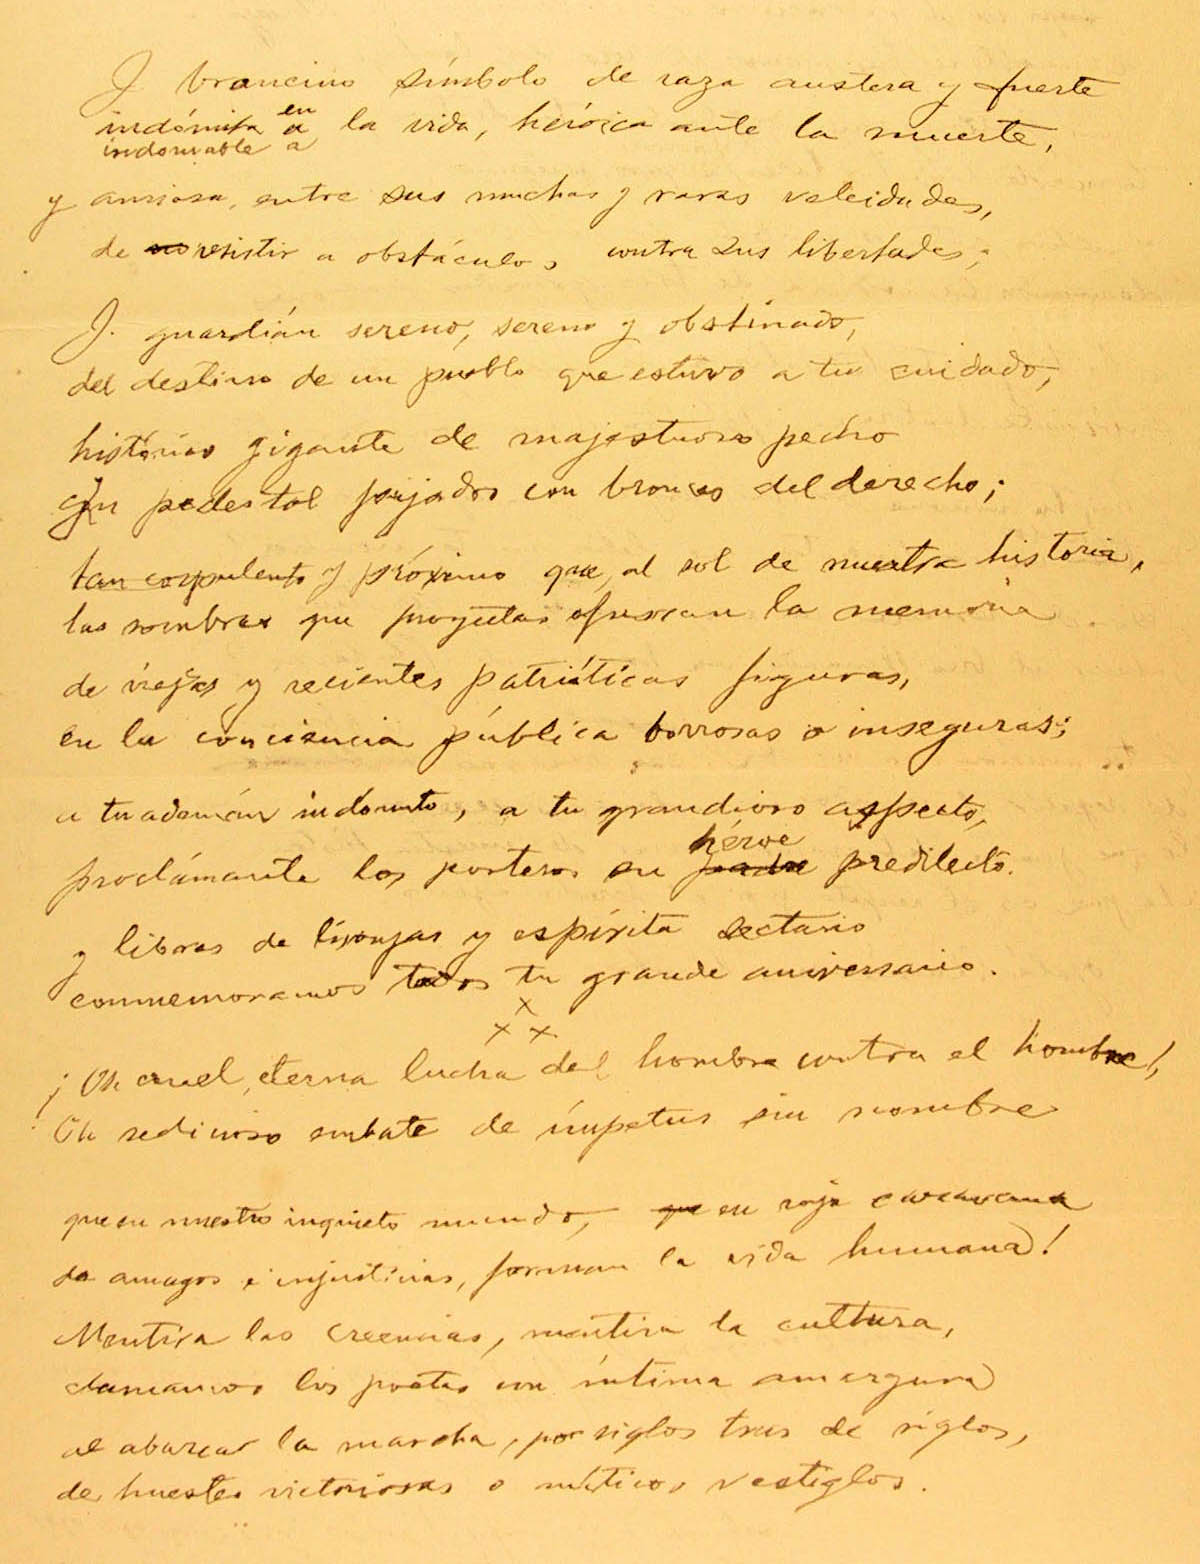 J. broncino símbolo de raza austera y fuerte
indómita en a la vida, heróica ante la muerte,
indomable a
y ansiosa, entre sus muchas y raras veleidades,
de resistir a obstáculos contra sus libertades;
J. guardián sereno, sereno y obstinado,
del destino de un pueblo que estuvo a tu cuidado,
histórico gigante de majestuoso pecho
en pedestal forjados con bronces del derecho;
tan corpulento y próximo que, al sol de nuestra historia,
las sombras que proyectas ofuscan la memoria
de viejas y recientes patrióticas figuras,
en la conciencia pública borrosas o inseguras;
a tu ademán indómito, a tu grandioso aspecto,
héroe
proclámante los porteños su padre predilecto.
y libres de lisonjas y espíritu sectario
conmemoramos todos tu grande aniversario.
x
x x
¡Oh cruel, eterna lucha del hombre contra el hombre!,
Oh sedicioso embate de ímpetus sin nombre
que en nuestro inquieto mundo, que en roja caravana
de amagos e injusticias, forman la vida humana!
Mentira las creencias, mentira la cultura,
clamamos los poetas con íntima amargura
al abarcar la marcha, por siglos tras de siglos,
de huestes victoriosas o míticos vestiglos.